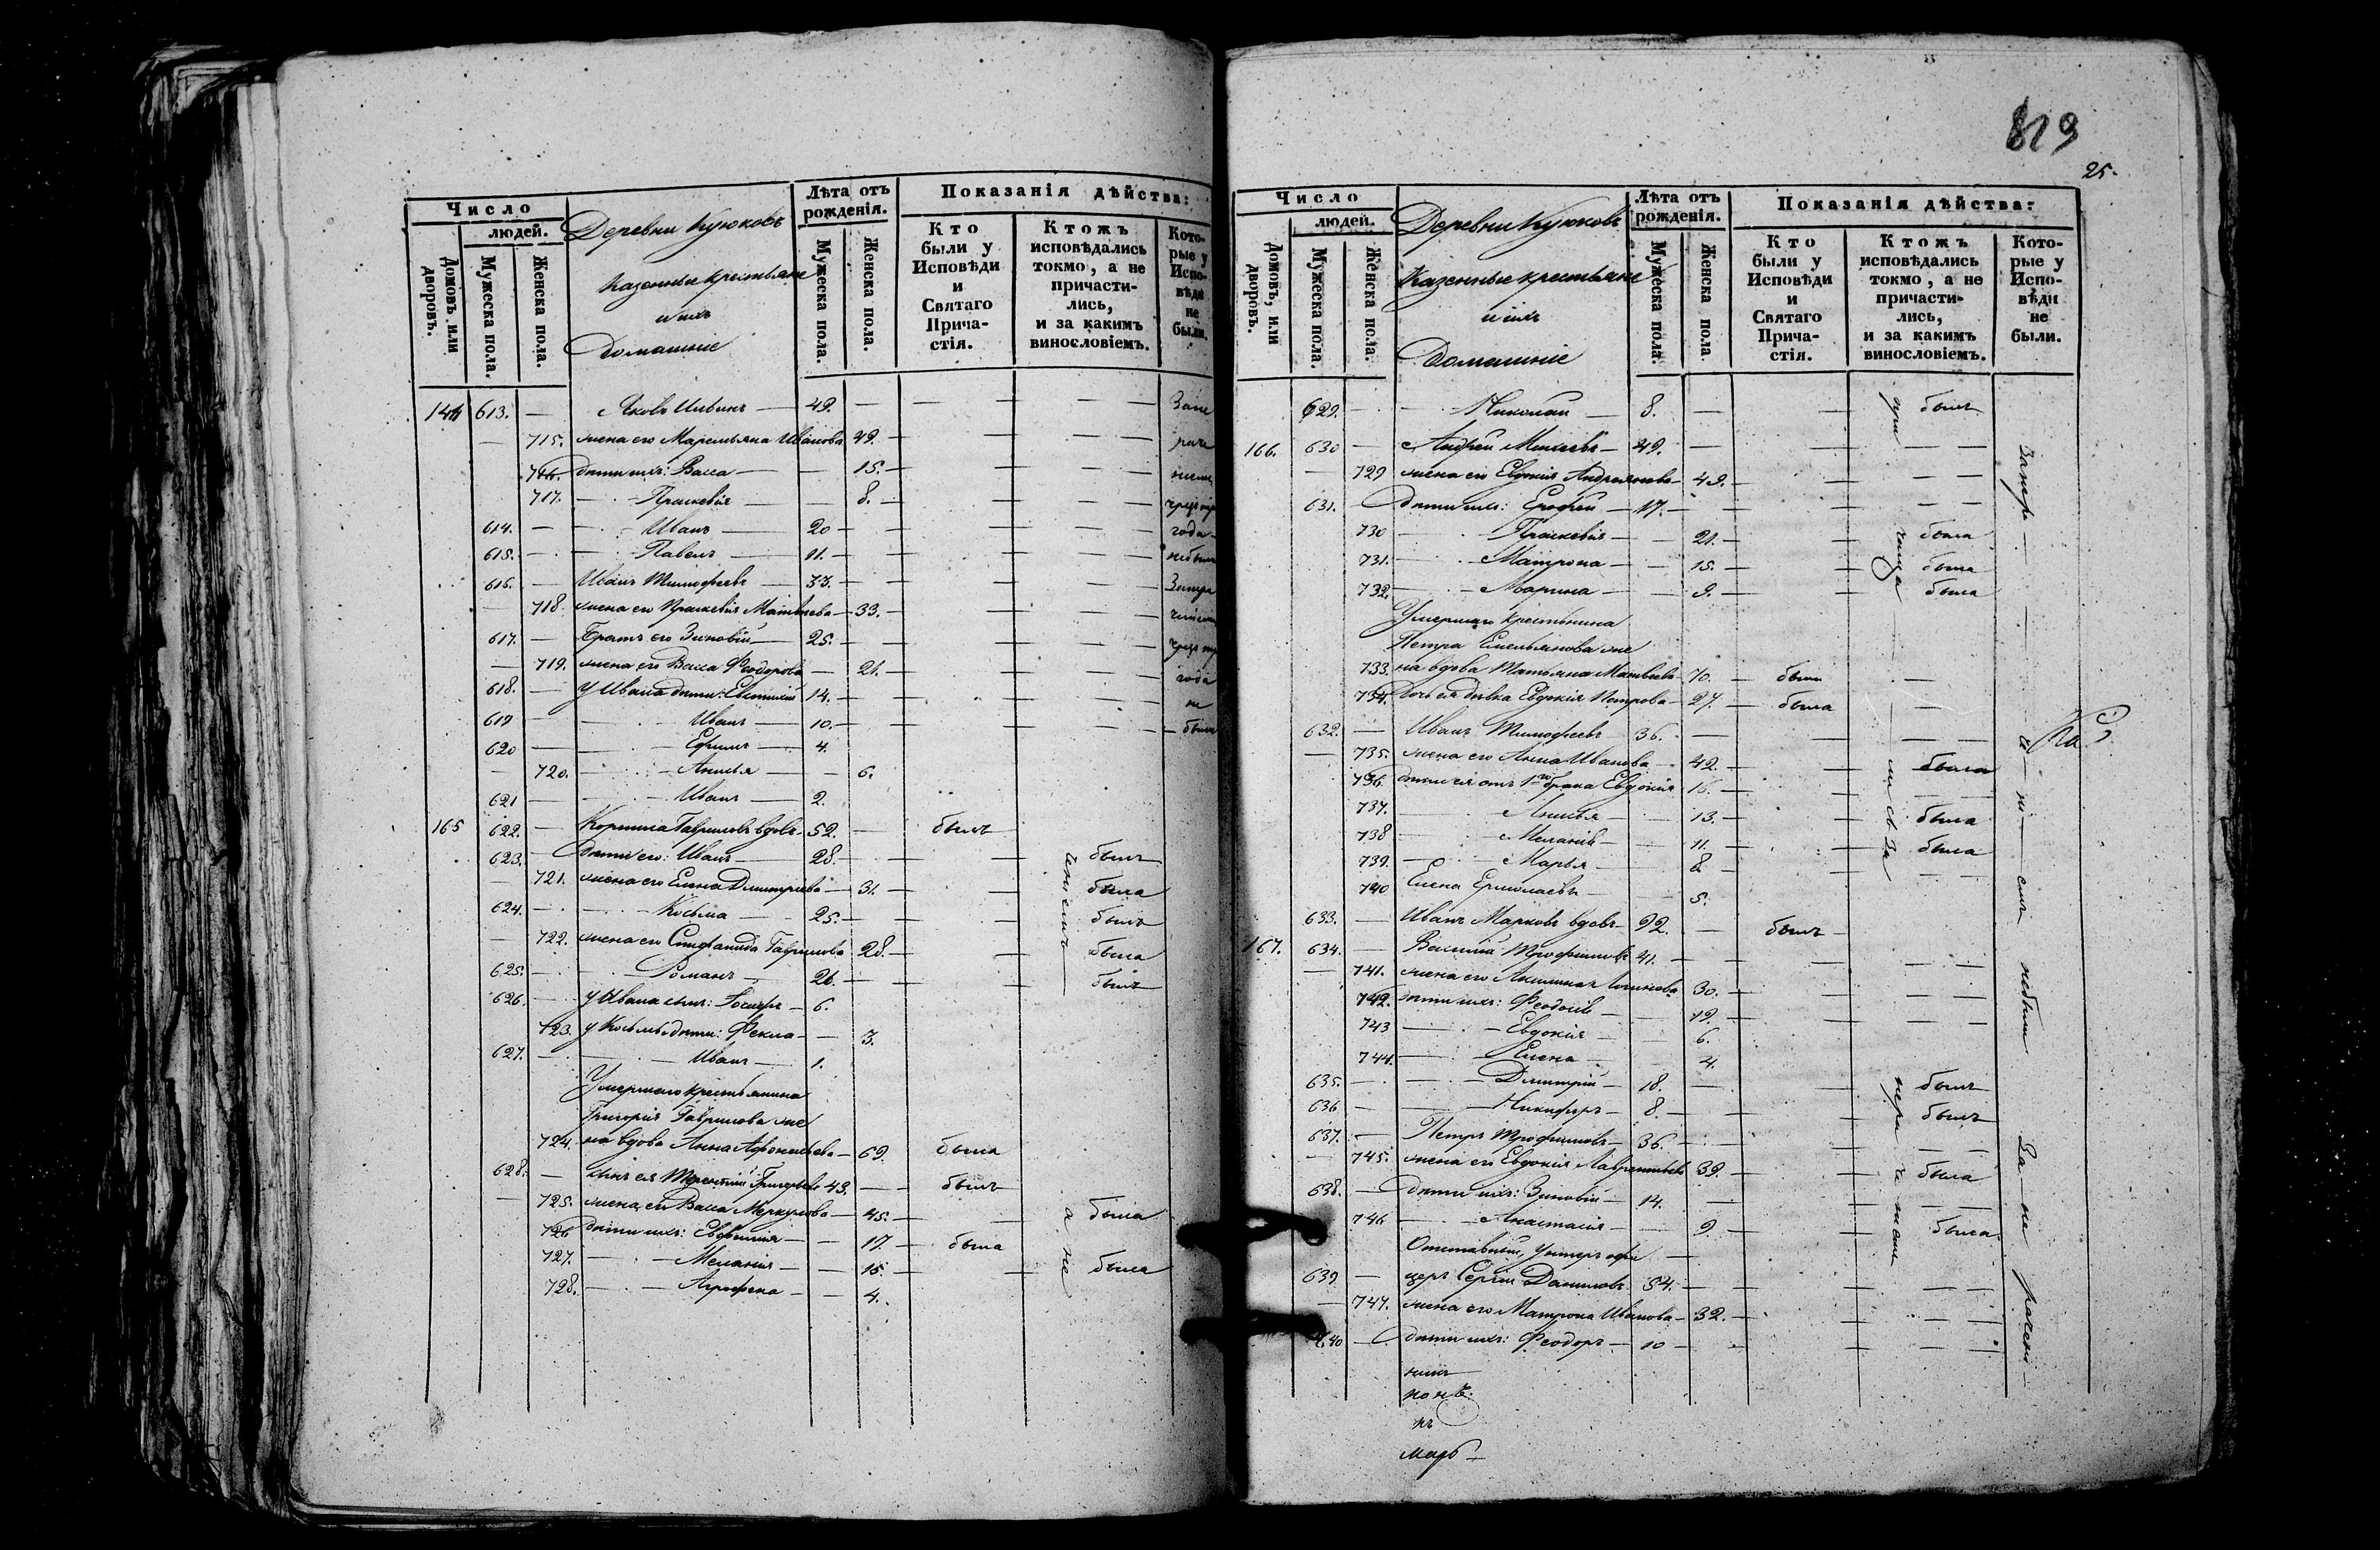 Число
людей.
Домовъ или дворовъ.
Мужеска пола.
Женска пола.
Деревни Куюковъ
Казенные крестьяне
и ихъ
Домашніе
Лѣта отъ рожденія.
Мужеска пола.
Женска пола.
Показанія дѣйства:
Кто были у Исповѣди и Святаго Прича-стія.
Ктожъ исповѣдались токмо, а не причасти-лись, и за какимъ винословіемъ.
Кото-рые у Испо-вѣди не были.
613. — Яковъ — 49. —
715. жена его Маремьяна Иванова 49. —
дѣти ихъ: Васса — — 15. —
717. — Праскевія — 8. —
614. — Иванъ — 20 —
615. — Павелъ — 11. —
616. — Иванъ Тимофеевъ — 33. —
718. жена его Праскевія Матвѣева — 33. —
617. — Братъ его Зиновій — 25. —
719. жена его Васса Феодорова — 21. —
618. — У Ивана дѣти: Евтихій 14. —
619 — Иванъ — 10. —
620 — Ефимъ — 4.
720. — Анисья — 6.
621 — Иванъ — 2.
165 622. — Корнила Гавриловъ вдовъ — 52. — былъ
623. — дѣти его: Иванъ — 28. — былъ
721. жена его Елена Димитріева — 31. — была
624. — Косьма — 25. — былъ
722. жена его Стефанида Гаврилова 28. — была
625. — Романъ — 21. — былъ
626. — У Ивана сынъ: Іосифъ — 6.
723. У Косьмы дѣти: Фекла — 3.
627. — Иванъ — 1.
Умершаго крестьянина
Григорія Гаврилова же
724. на вдова Анна Афонасьева — 69. была
628. — сынъ ея Терентій Григорьевъ 43. — былъ
725. жена его Васса Меркулова — 45. — была
726 дѣти ихъ: Евфимія — 17. — была
727. — Меланія — 15. — была
728. — Агрофена — 4.
819
25.
Число
людей.
Домовъ, или дворовъ.
Мужеска пола.
Женска пола.
Деревни Куюковъ
Казенные крестьяне
и ихъ
Домашніе
Лѣта отъ рожденія.
Мужеска пола.
Женска пола.
Показанія дѣйства:
Кто были у Исповѣди и Святаго Прича-стія.
Ктожъ исповѣдались токмо, а не причасти-лись, и за какимъ винословіемъ.
Кото-рые у Испо-вѣди не были.
629. — Николай — 8. — былъ
166. 630 — Андрей Михеевъ — 49. —
729 жена его Евдокія Андреянова — 49. —
631. — дѣти ихъ: Ерофей — 17. —
730 — Праскевія — 21. — была
731. — Матрона — 15. — была
732. — Марина — 9. — была
Умершаго крестьянина
Петра Емельянова же
733. на вдова Татьяна Матвѣева — 70. — была
734. Дочь ея дѣвка Евдокія Петрова — 27. — была
632. — Иванъ Тимофеевъ — 36. —
735. жена его Анна Иванова — 42. — была
736. дѣти ея отъ 1го брака Евдокія 16. —
737. — Анисья — 13. — была
738 — Меланія — 11. — была
739. — Марья — 8 —
740 Елена Ермолаевъ — 5.
633. — Иванъ Марковъ вдовъ — 92. — былъ
167. 634. — Василій Трофимовъ 41. —
741. жена его Акилина 30. —
742. дѣти ихъ: Феодосія — 12. —
743 — Евдокія — 6.
744. — Елена — 4.
635. — Димитрій — 18. — былъ
636 — Никифоръ — 8. — былъ
637. — Петръ Трофимовъ — 36. —
745. жена его Евдокія Лаврентьева 39. — была
638. — дѣти ихъ: Зиновій — 14. —
746 — Анастасія — 9. — была
Отставный Унтеръ офи
639. — церъ Сергій Даниловъ 54. —
747. жена его Матрона Иванова — 32. —
640 — дѣти ихъ: Феодоръ — 10 —